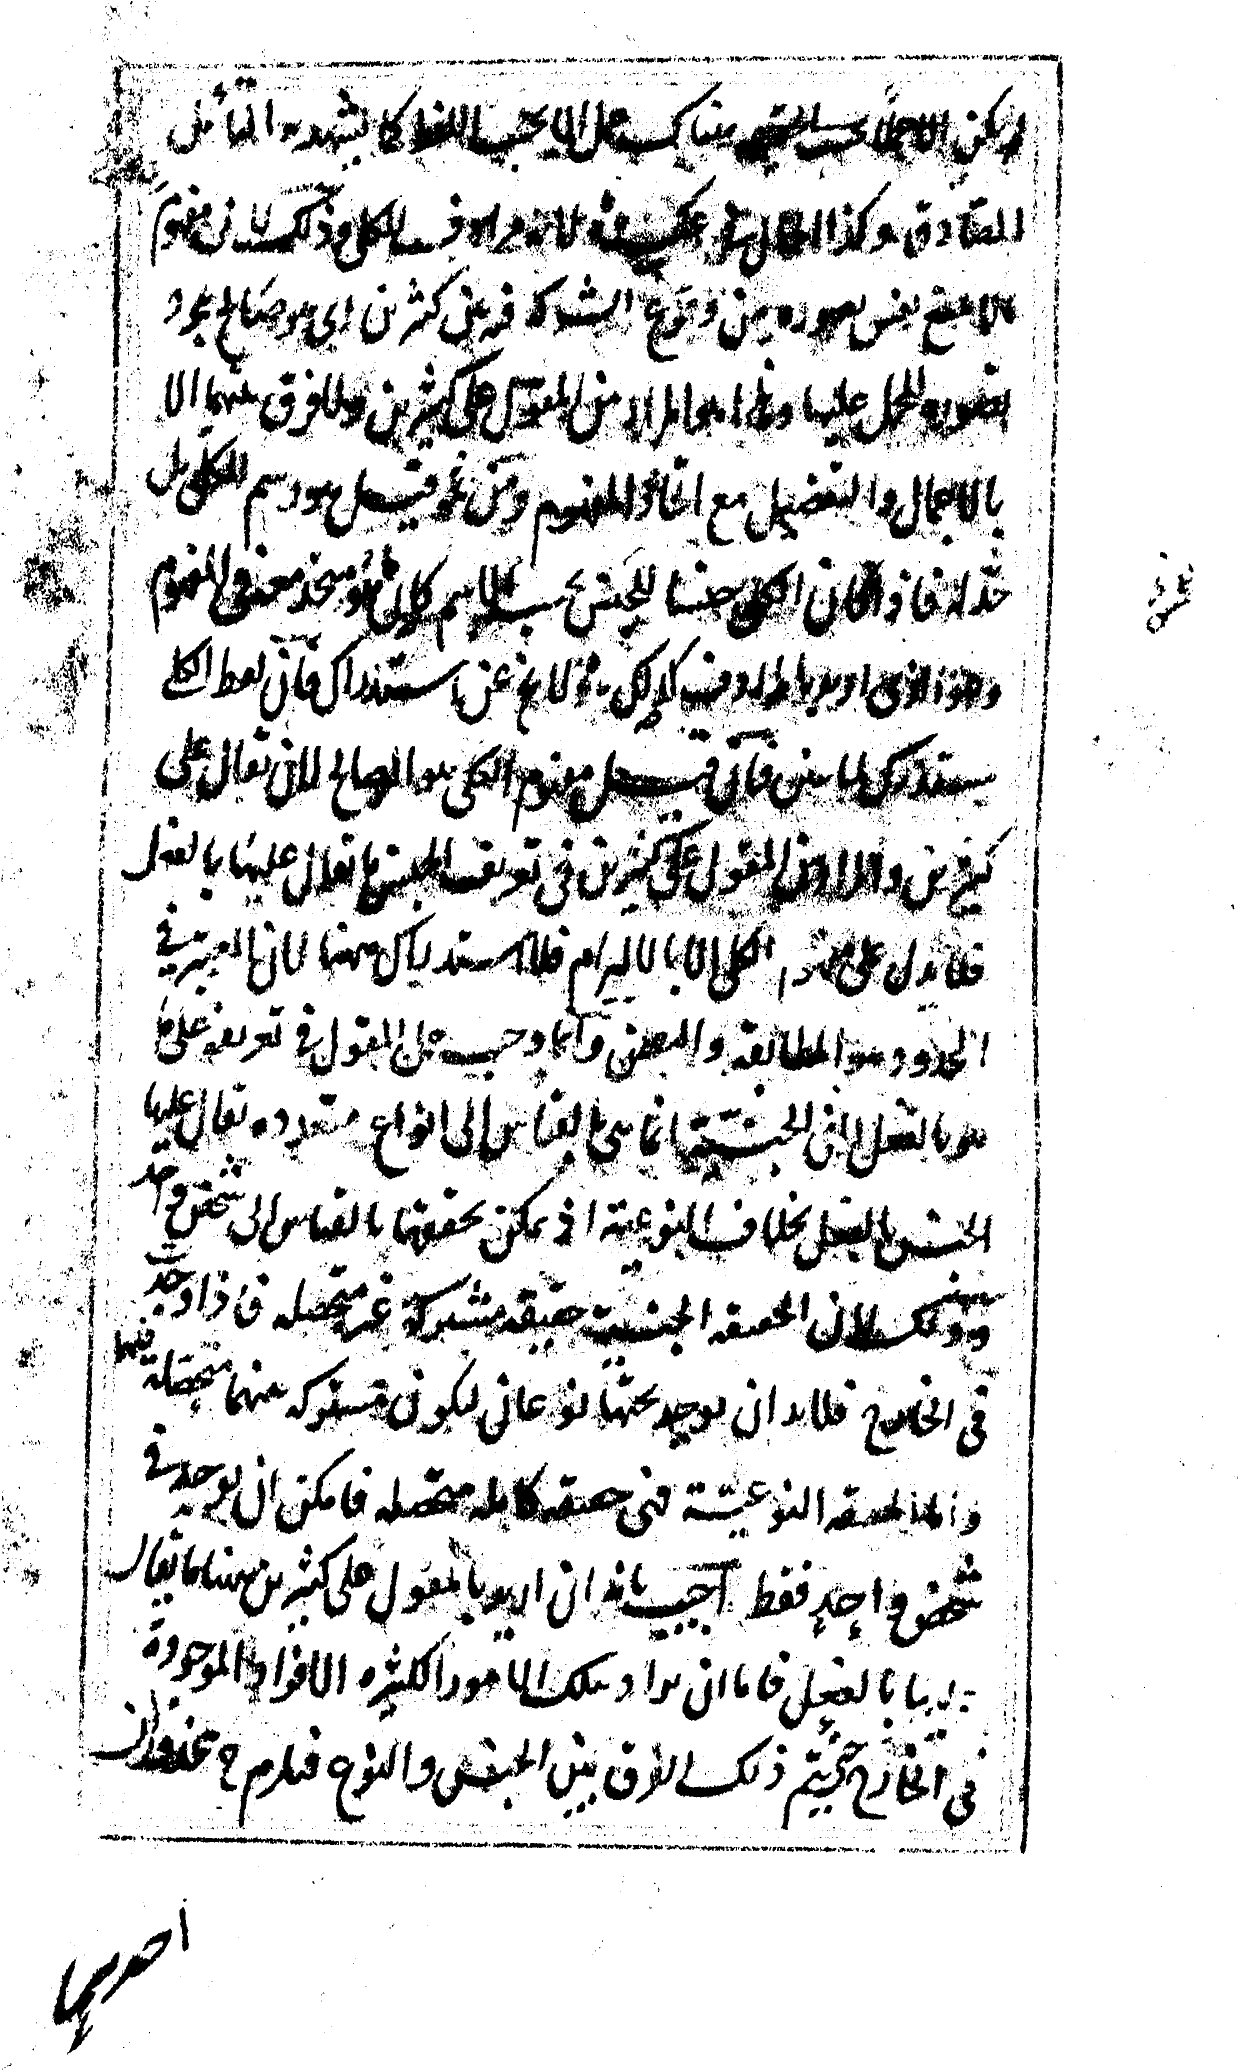 لم يكن الاجمال بحسب الحقيقة هناك على الا بحسب اللفظ كما يشهد به المتأمل
الصادق وكذا الحال في عكسه لانه مرادف للكلي وذلك لان مفهوم
ما لا يمنع نفس تصوره من وقوع الشركة فيه بين كثيرين اي هو صالح بمجرد
تصوره للحمل عليها وهذا هو المراد من المقول على كثيرين ولا فرق بينهما الا
بالاجمال والتفصيل مع اتحاد المفهوم ومن ثم قيل هو رسم للكلي بل
حد له فاذا كان الكلي جنسا للجنس بحسب الاسم كان متحد معه في المفهوم
وهو الذي اريد بالمرادف لذلك لا يخ عن استدراك فان لفظ الكلي
مستدرك لما بين فان قيل مفهوم الكلي هو الصالح لان يقال على
كثيرين والمراد من المقول على كثيرين في تعريف الجنس ما يقال عليها بالفعل
فلا يدل على مفهوم الكلي الا بالالتزام فلا استدراك ههنا لان المعتبر في
الحدود هو المطابقة والتضمن وانما وجب حمل المقول في تعريفه على ما
هو بالفعل لان الجنسية انما هي بالقياس الى انواع متعددة يقال عليها
الجنس بالفعل بخلاف النوعية اذ يمكن تحققها بالقياس الى شخص واحد
وذلك لان الحقيقة الجنسية حقيقة مشتركة غير متحصلة فاذا وجدت
في الخارج فلا بد ان يوجد تحتها نوعان ليكون مشتركة بينهما متحصلة فيهما
واما الحقيقة النوعية فهي حقيقة كاملة متحصلة فامكن ان يوجد في
شخص واحد فقط اجيب بانه ان اريد بالمقول على كثيرين ههنا ما يقال
عليها بالفعل فاما ان يراد بتلك الامور الكثيرة الافراد الموجودة
في الخارج حتى يتم ذلك الفرق بين الجنس والنوع فيلزم ح محذوران
احديهما